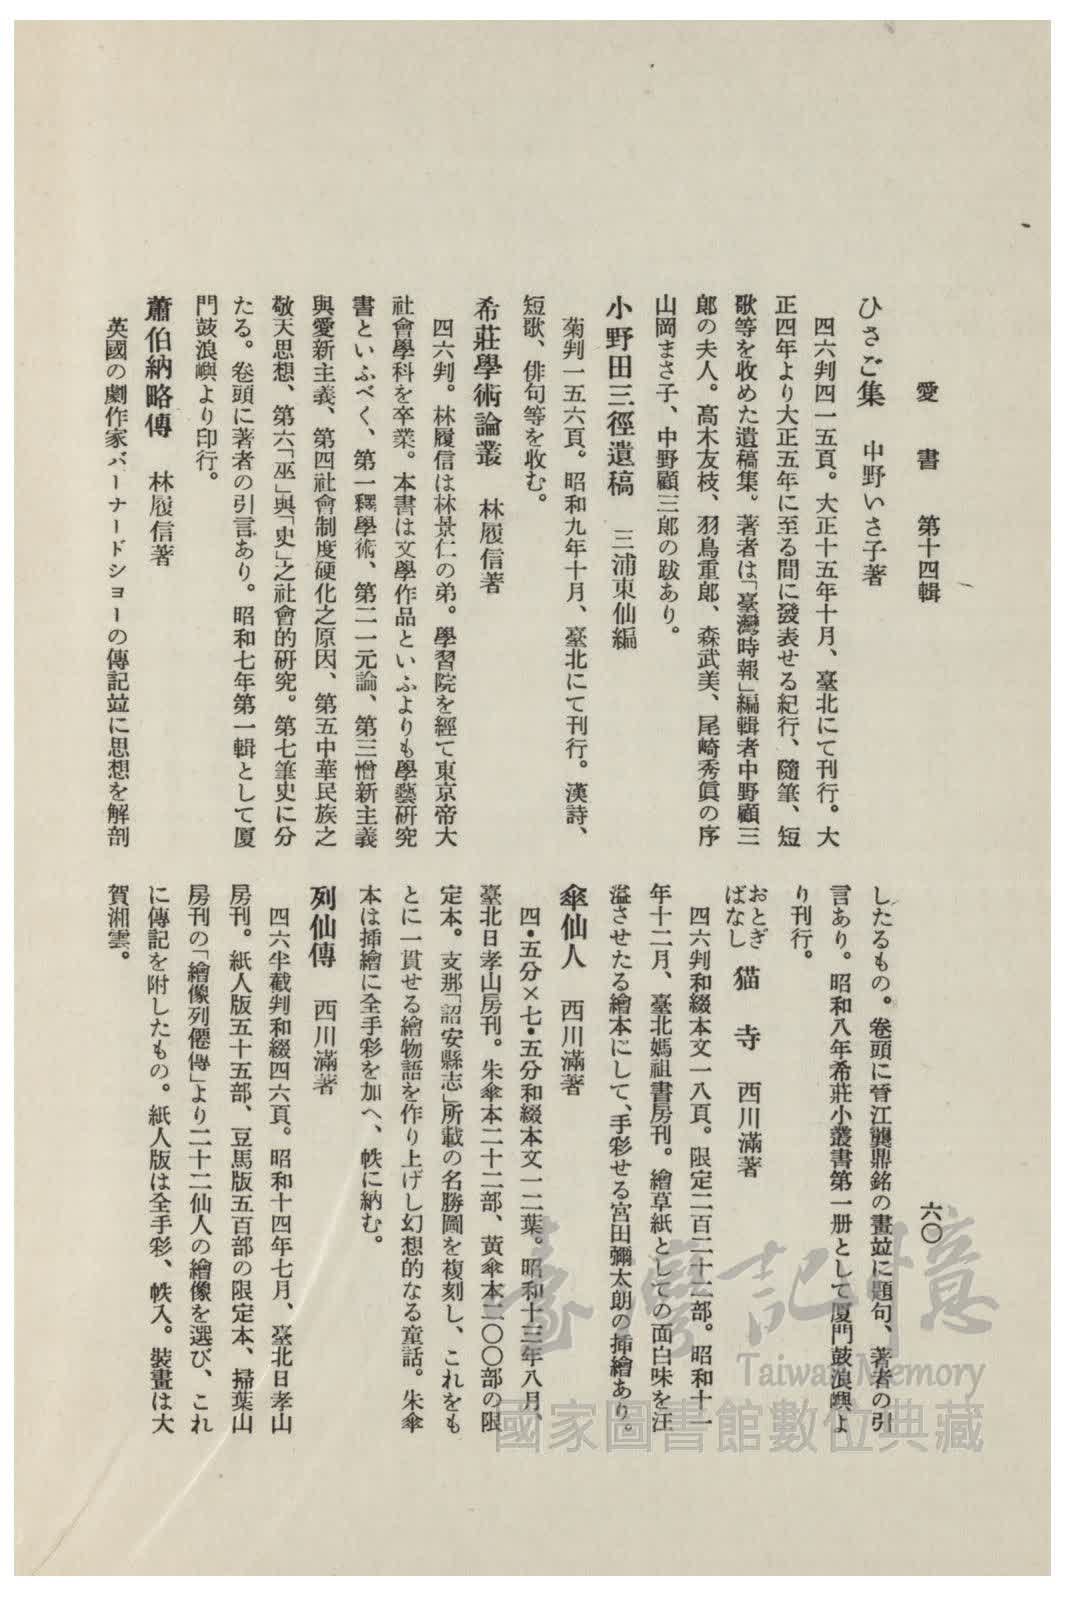 愛書 第十四輯
六〇
ひさご集 中野いさ子著
四六判四一五頁。大正十五年十月、臺北にて刊行。大
正四年より大正五年に至る間に發表せる紀行、隨筆、短
歌等を收めた遺稿集。著者は「臺灣時報」編輯者中野顧三
郞の夫人。高木友枝、羽鳥重郞、森武美、尾崎秀眞の序
山岡まさ子、中野顧三郞の跋あり。
小野田三徑遺稿 三浦東仙編
菊判一五六頁。昭和九年十月、臺北にて刊行。漢詩、
短歌、俳句等を收む。
希莊學術論叢 林履信著
四六判。林履信は林景仁の弟。學習院を經て東京帝大
社會學科を卒業。本書は文學作品といふよりも學藝硏究
書といふべく、第一釋學術、第二一元論、第三憎新主義
與愛新主義、第四社會制度硬化之原因、第五中華民族之
敬天思想、第六「巫」與「史」之社會的硏究。第七筆史に分
たる。卷頭に著者の引言あり。昭和七年第一輯として厦
門鼓浪嶼より印行。
蕭伯納略傳 林履信著
英國の劇作家バーナードショーの傳記竝に思想を解剖
したるもの。卷頭に晉江龔鼎銘の畫竝に題句、著者の引
言あり。昭和八年希莊小叢書第一册として厦門鼓浪嶼よ
り刊行。
おとぎばなし 猫寺 西川滿著
四六判和綴本文一八頁。限定二百二十二部。昭和十一
年十二月、臺北媽祖書房刊。繪草紙としての面白味を汪
溢させたる繪本にして、手彩せる宮田彌太朗の揷繪あり。
傘仙人 西川滿著
四・五分×七・五分和綴本文一二葉。昭和十三年八月、
臺北日孝山房刊。朱傘本二十二部、黃傘本二〇〇部の限
定本。支那「詔安縣志」所載の名勝圖を複刻し、これをも
とに一貫せる繪物語を作り上げし幻想的なる童話。朱傘
本は揷繪に全手彩を加へ、帙に納む。
列仙傳 西川滿著
四六半截判和綴四六頁。昭和十四年七月、臺北日孝山
房刊。紙人版五十五部、豆馬版五百部の限定本、掃葉山
房刊の「繪像列僊傳」より二十二仙人の繪像を選び、これ
に傳記を附したもの。紙人版は全手彩、帙入。裝畫は大
賀湘雲。
臺灣記憶
Taiwan Memory
國家圖書館數位典藏